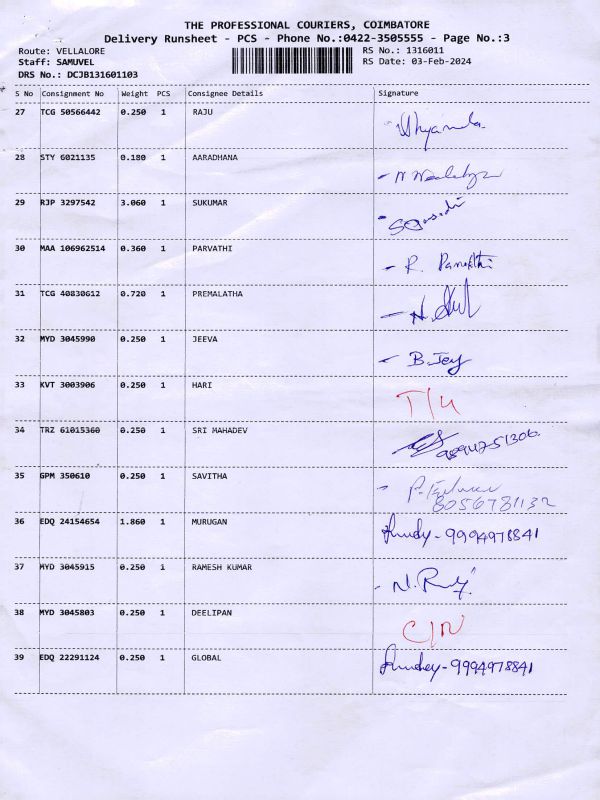 THE PROFESSIONAL COURIERS, COIMBATORE
Delivery Runsheet - PCS - Phone No.:0422-3505555 - Page No.:3
Route: VELLALORE RS No.: 1316011
Staff: SAMUVEL RS Date: 03-Feb-2024
DRS No.: DCJB131601103
S No Consignment No Weight PCS Consignee Details Signature
27 TCG 50566442 0.250 1 RAJU
28 STY 6021135 0.180 1 AARADHANA
29 RJP 3297542 3.060 1 SUKUMAR
30 MAA 106962514 0.360 1 PARVATHI - R. Parvathi
31 TCG 40830612 0.720 1 PREMALATHA
32 MYD 3045990 0.250 1 JEEVA - B. Jey
33 KVT 3003906 0.250 1 HARI T/U
34 TRZ 61015360 0.250 1 SRI MAHADEV
35 GPM 350610 0.250 1 SAVITHA
8056781132
36 EDQ 24154654 1.860 1 MURUGAN - 9994978841
37 MYD 3045915 0.250 1 RAMESH KUMAR
38 MYD 3045803 0.250 1 DEELIPAN C/N
39 EDQ 22291124 0.250 1 GLOBAL - 9994978841